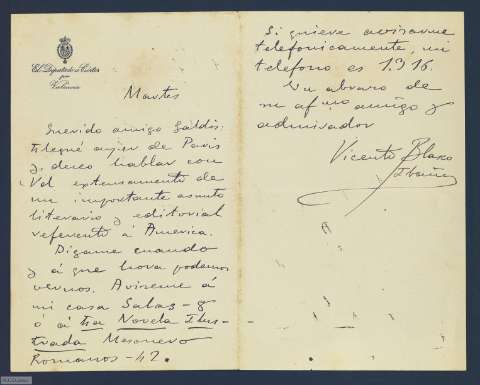 El Diputado á Cortes
por
Valencia
Martes
Querido amigo Galdós:
Llegué ayer de París
y deseo hablar con
Vd extensamente de
un importante asunto
literario y editorial
referente á America.
Digame cuando
y á que hora podemos
vernos. Aviseme á
mi casa Salas-8
ó á La Novela Ilus-
trada Mesonero
Romanos-42.
Si quiere avisarme
telefonicamente, mi
telefono es 1.916.
Un abrazo de
su afmo amigo y
admirador
Vicente Blasco
Ibáñez